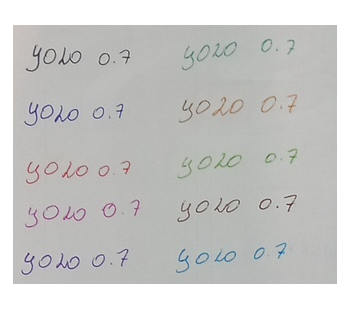 yolo 0.7
yolo 0.7
yolo 0.7
yolo 0.7
yolo 0.7
yolo 0.7
yolo 0.7
yolo 0.7
yolo 0.7
yolo 0.7